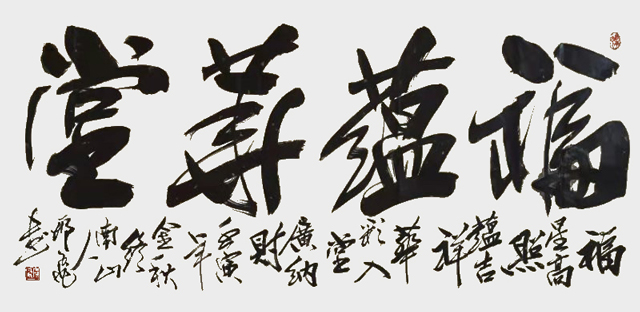 福蘊華堂
福星高照蘊吉祥華彩入堂廣納財壬寅年金秋終南山